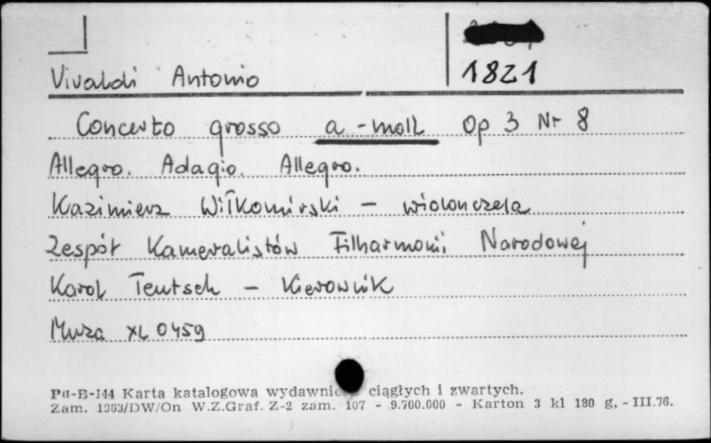 1821
Vivaldi Antonio
Concerto grosso a-moll Op 3 Nr 8
Allegro. Adagio. Allegro.
Kazimierz Wiłkomirski - wiolonczela
Zespół Kameralistów Filharmonii Narodowej
Karol Teutsch - Kierownik
Muza XL 0459
Pu-B-144 Karta katalogowa wydawnic ciągłych i zwartych.
Zam. 1363/DW/On W.Z.Graf. Z-2 zam. 107 - 9.700.000 - Karton 3 kl 180 g, - III.76.